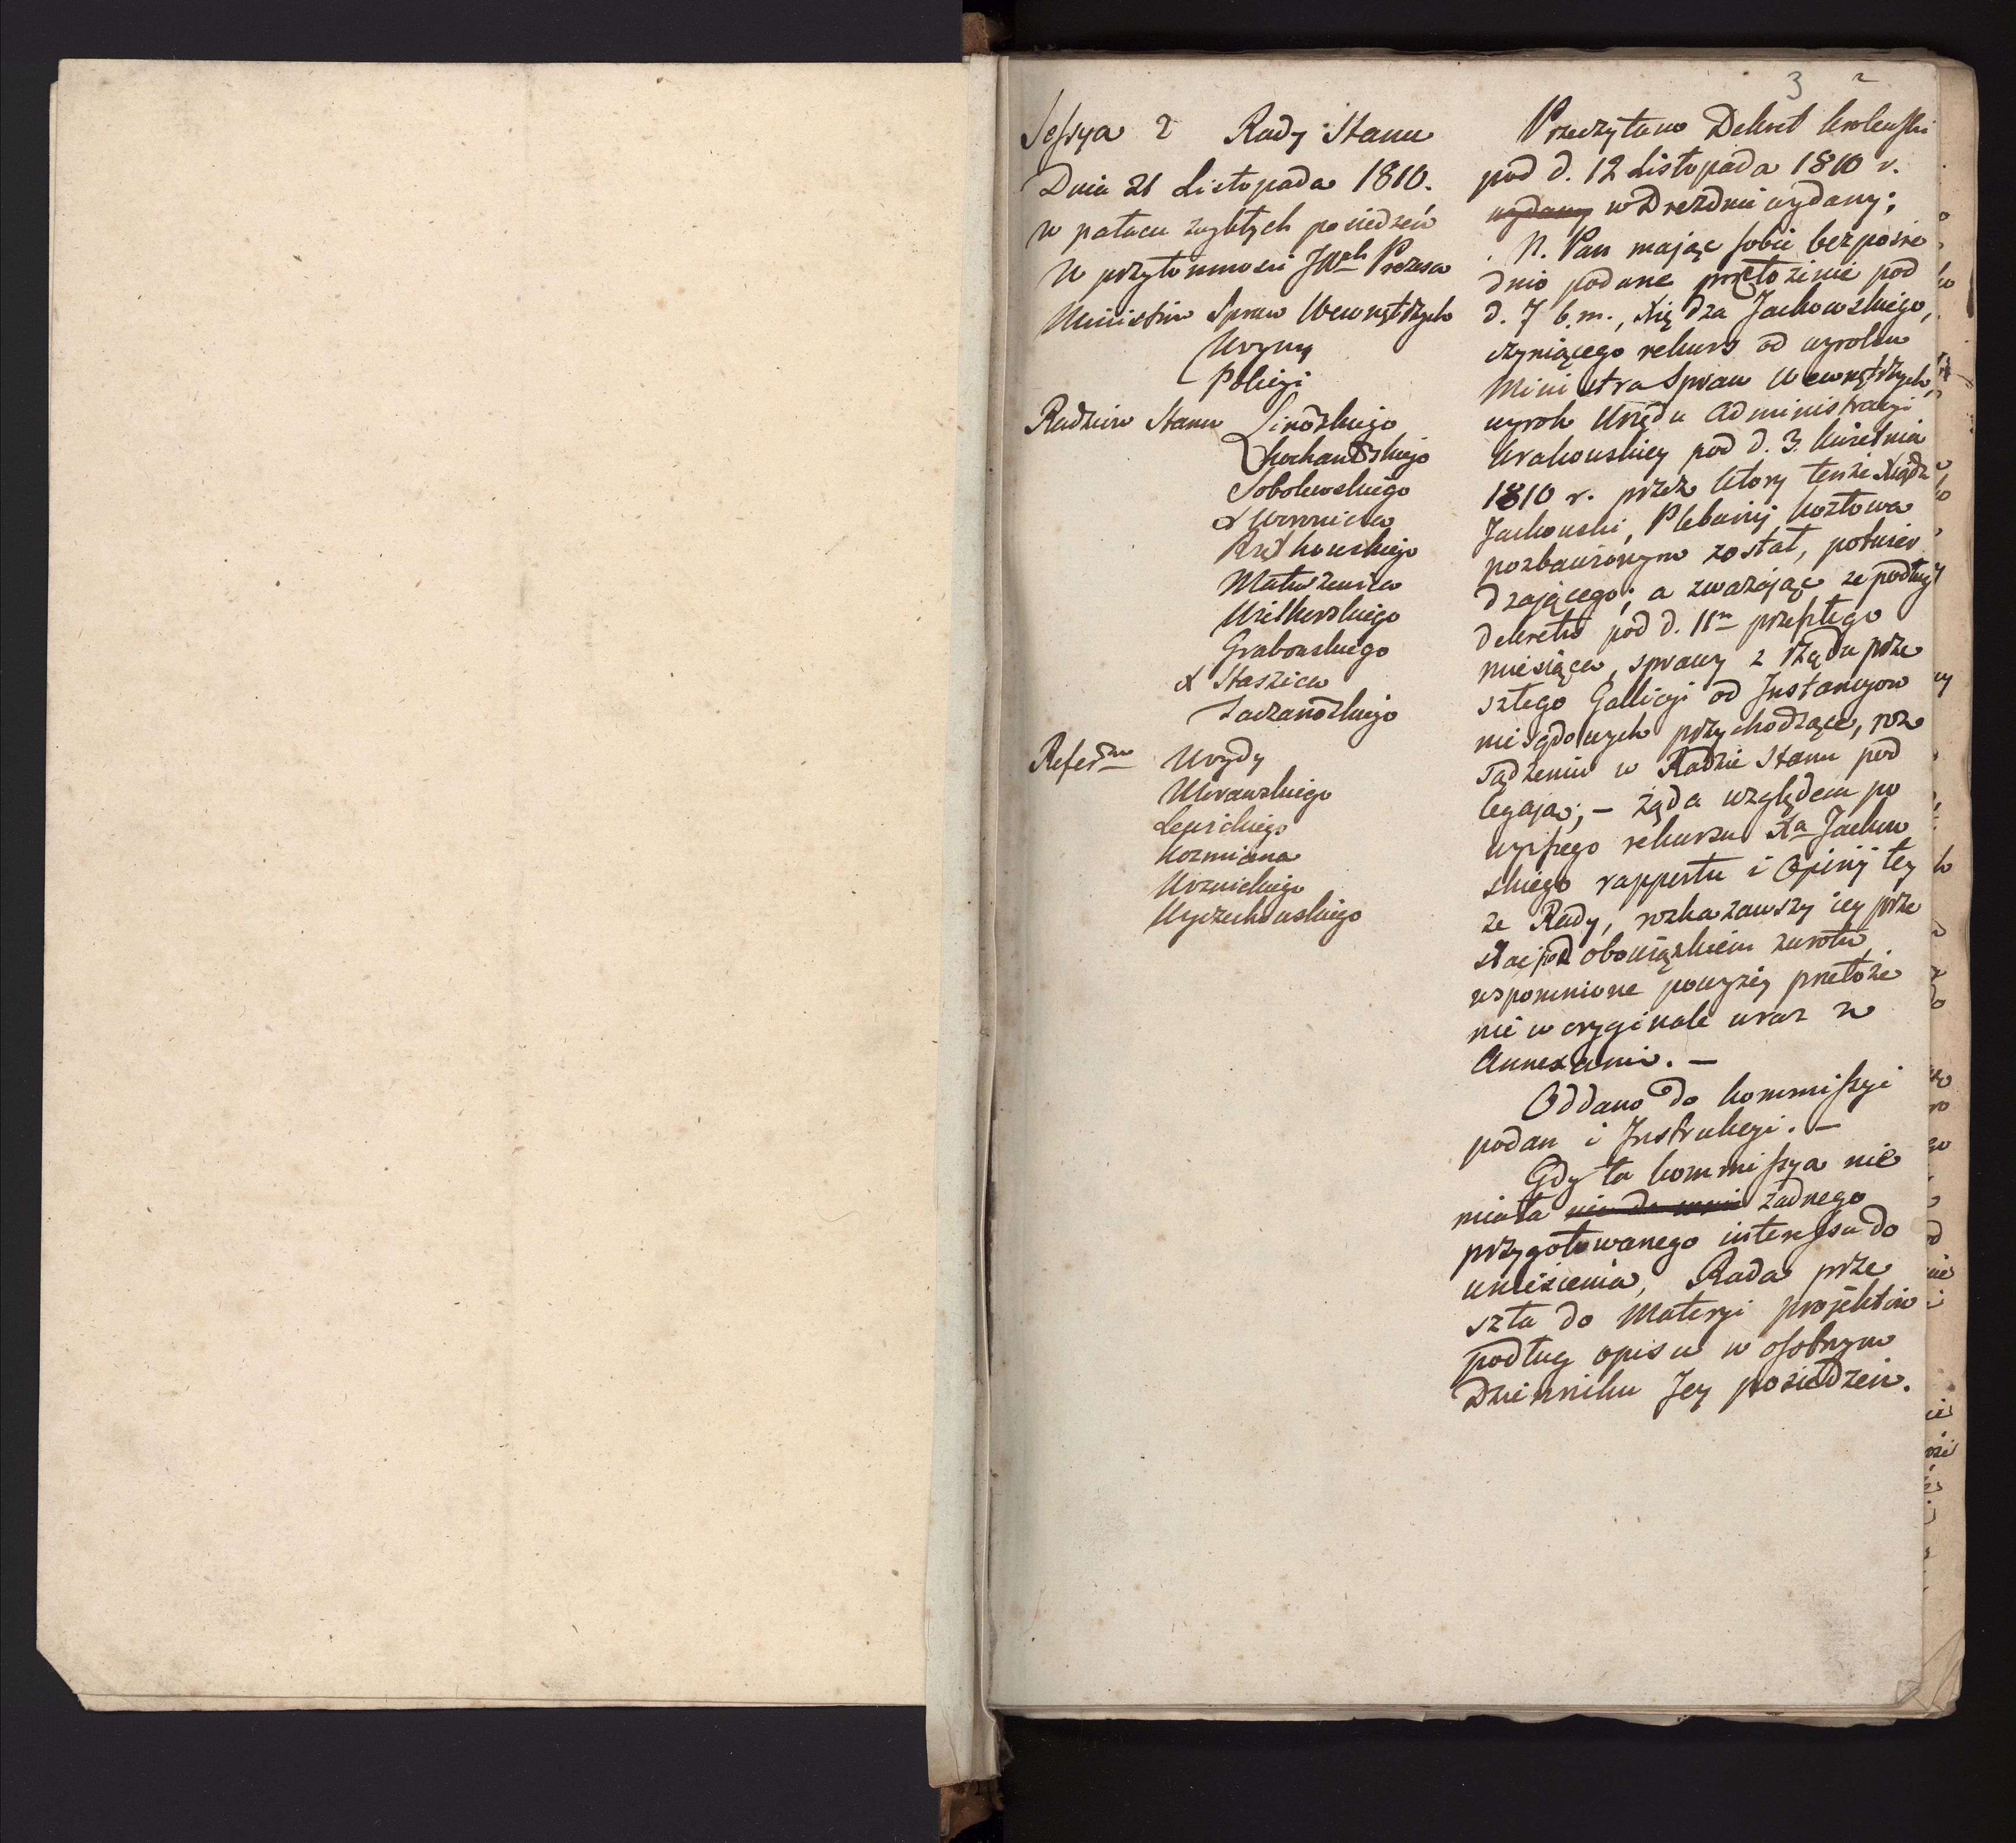 3 2
Sessya 2 Rady Stanu
Dnia 21 Listopada 1810.
w pałacu zwykłych posiedzeń
W przytomności JWch Prezesa
Ministrów Spraw Wewnętrznych
Woyny
Policyi
Radzców Stanu Linowskiego
Kochanowskiego
Sobolewskiego
X Woronicza
Matuszewica
Wielhorskiego
Grabowskiego
X Staszica
Łaczanowskiego
Morawskiego
Lewickiego
Kozmiana
Woznickiego
Wyczechowskiego
Przeczytano Dekret krolewski
pod d. 12 Listopada 1810 r.
wydany w Dreznie wydany;
N. Pan maiąc sobie bezpośre
dnio podane przełożenie pod
d. 7 b. m., Xiędza Jachowskiego,
czyniącego rekurs od wyroku
Ministra Spraw Wewnętrznych,
wyrok Urzędu Administracyi
krakowskiey pod d. 3. kwietnia
1810 r. przez ktory tenże Xiądz
Jachowski, Plebanij kozłowa
pozbawionym został, potwier
dzaiącego; a zważaiąc że podług
dekretu pod d. 11m przeszłego
miesiąca, sprawy z rządu prze
szłego Gallicyi od Instancyow
niesądowych przychodzące, roz
sądzeniu w Radzie Stanu pod
legaią; - żąda względem po
wyższego rekursu Xa Jachow
skiego rapportu i Opinij tey
że Rady, rozkazawszy iey prze
słać pod obowiązkiem zwrotu,
wspomnione powyżey przełoże
nie w oryginale wraz z
Annexami. -
Oddano do kommissyi
podan i Instrukcyi. -
Gdy ta kommissya nie
miała żadnego
przygotowanego interessu do
wniesienia, Rada prze
szła do Materyi projektów
podług opisu w osobnym
Dzienniku Jey posiedzeń.